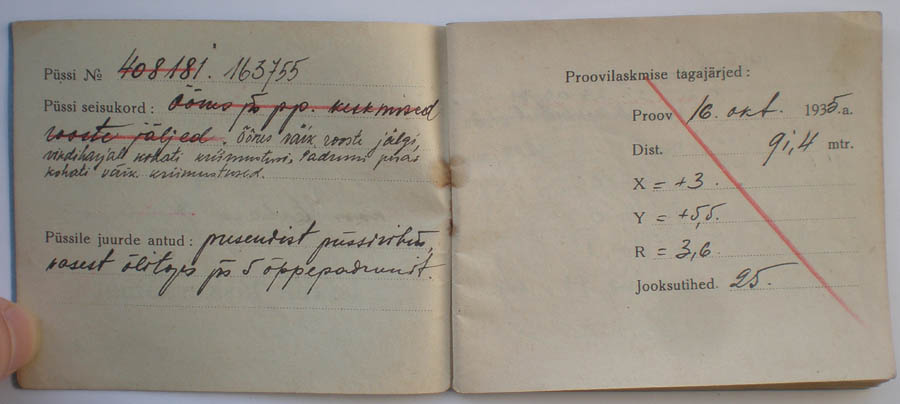 Püssi № 408181. 163755
Püssi seisukord: Õõnes ja pp. keskmised
rooste jäljed. Õõnes väik. rooste jälgi,
kohati kriimustusi. Padruni pesas
kohati väik. kriimustused.
Püssile juurde antud: presendist püssirihm,
vasest õlitops ja 5 õppepadrunit.
Proovilaskmise tagajärjed:
Proov 16. okt. 1935.a.
Dist. 91,4 mtr.
X = +3.
Y = +5,5.
R = 3,6.
Jooksutihed. 25.